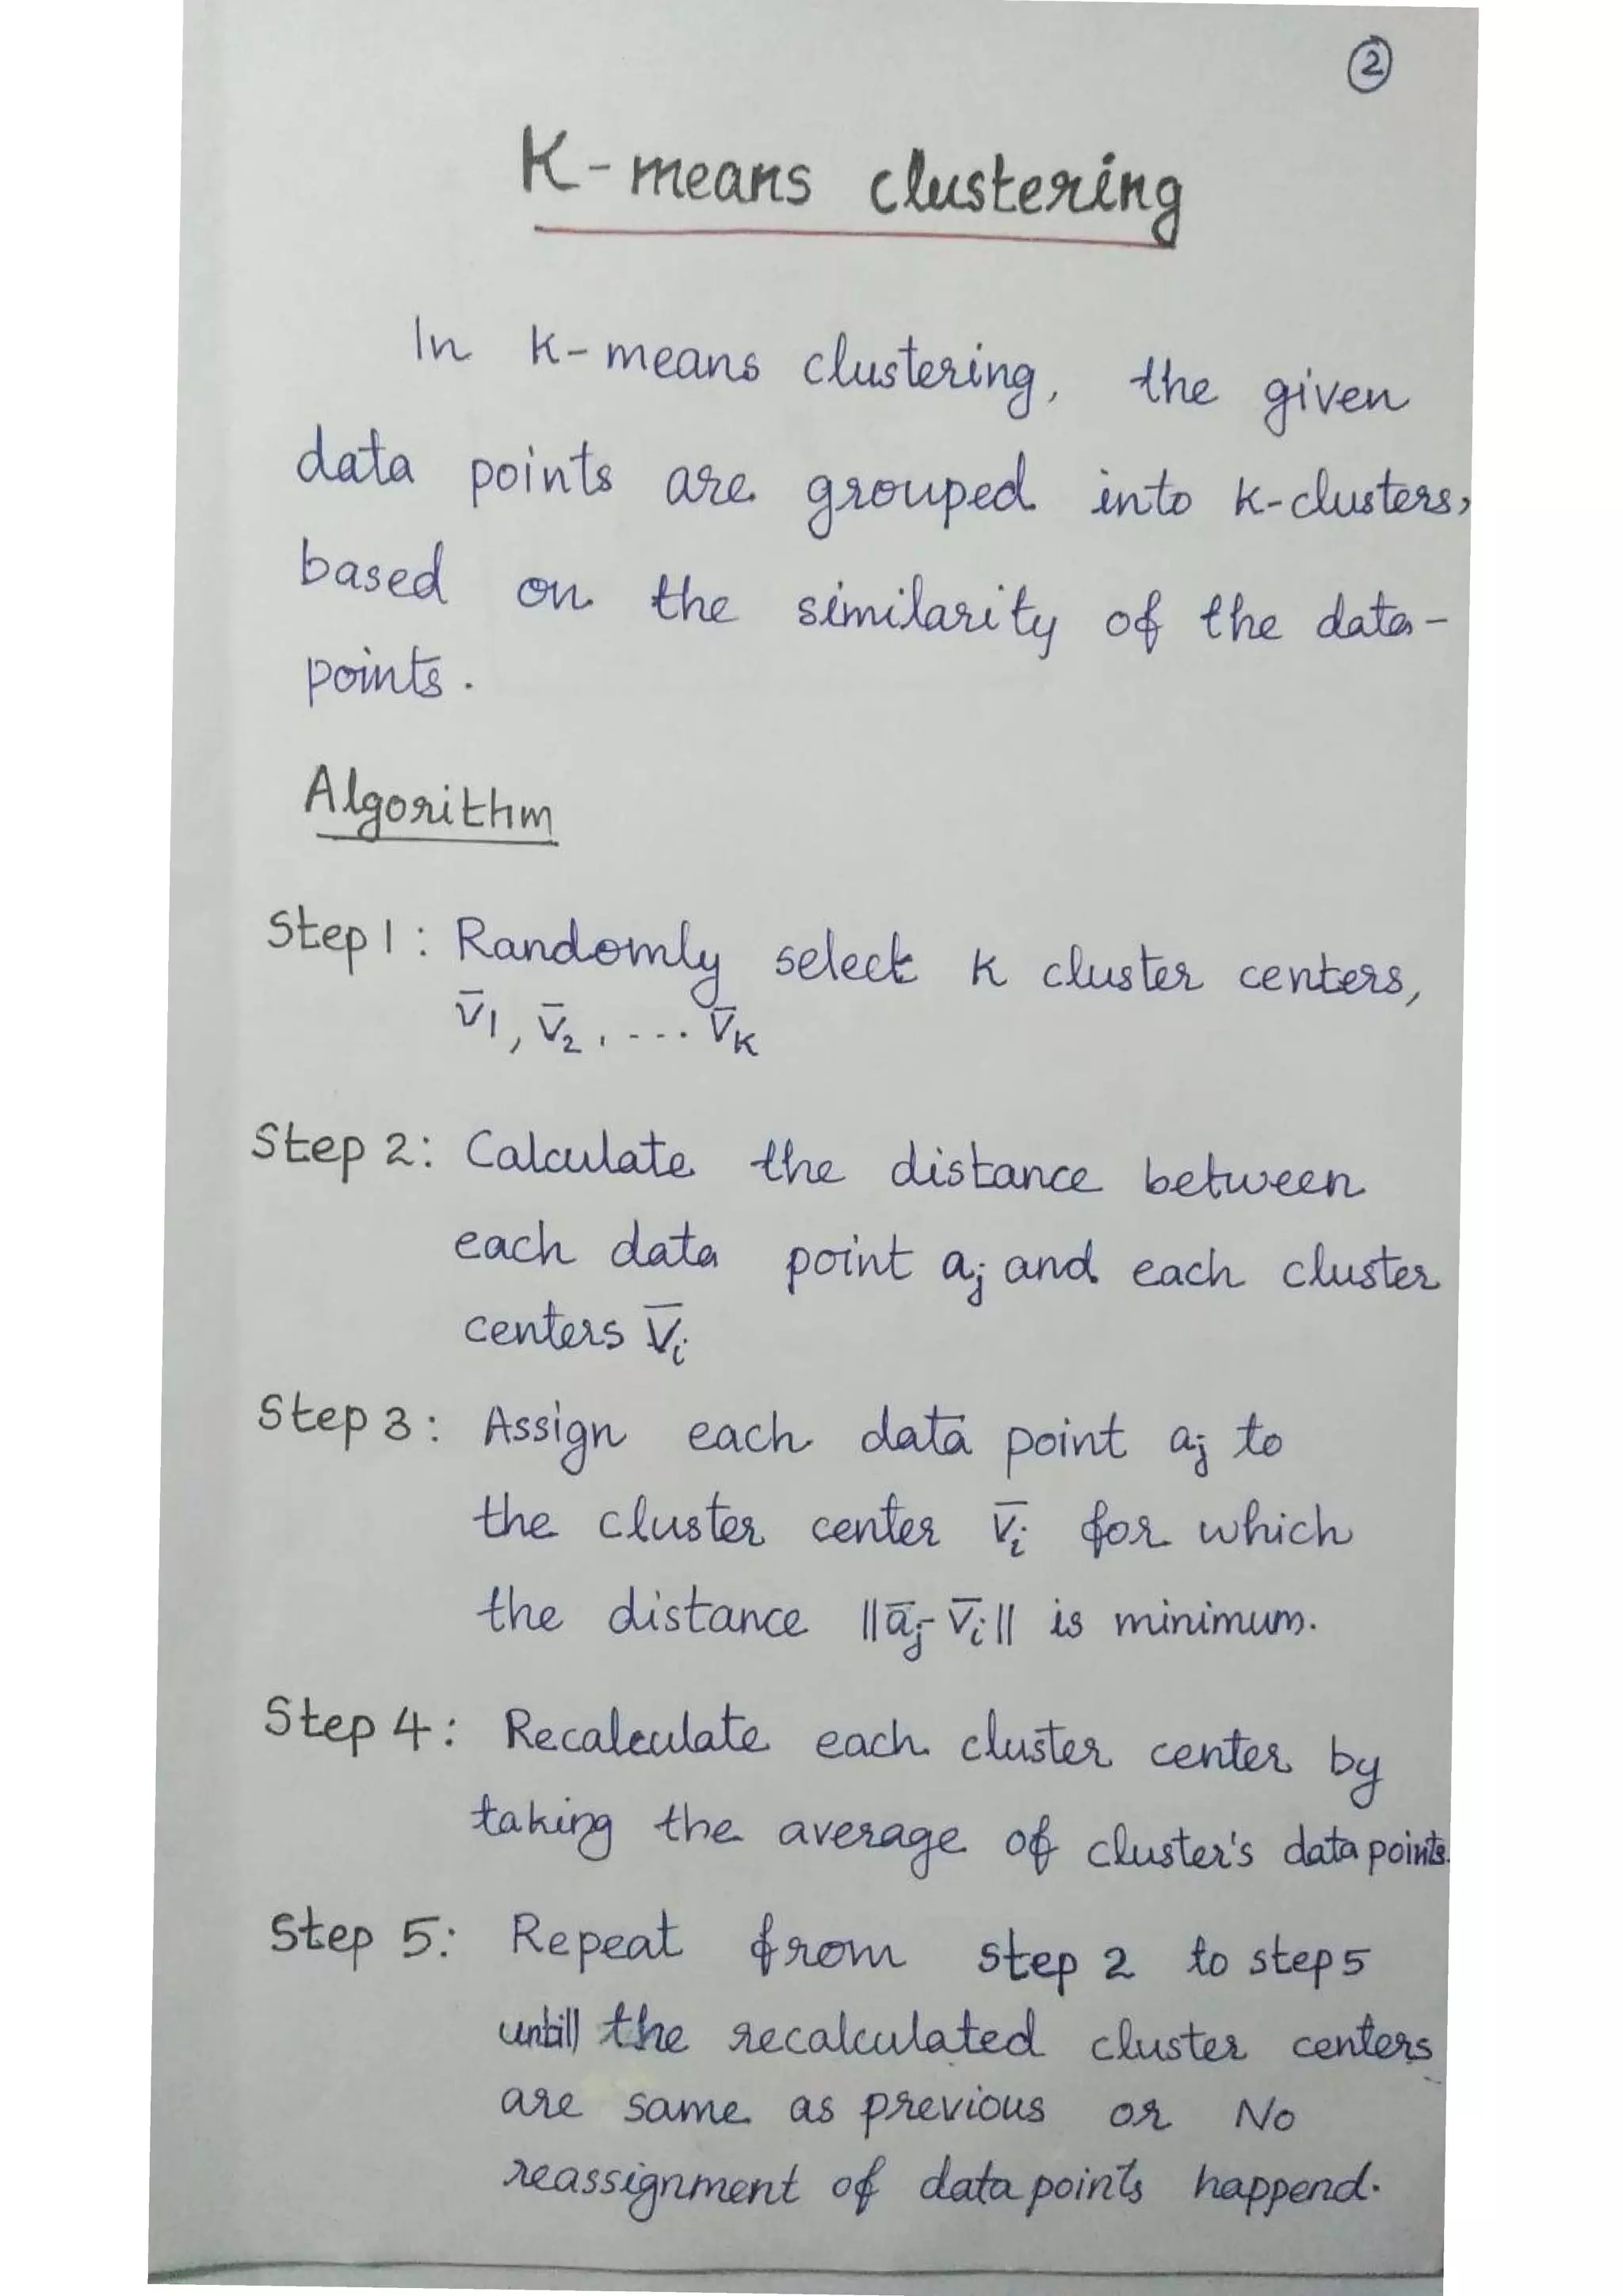 2
K-means clustering
In K-means clustering, the given
data points are grouped into K-clusters,
based on the similarity of the data-
points.
Algorithm
Step 1: Randomly select K cluster centers,
V̅1, V̅2, .... V̅K
Step 2: Calculate the distance between
each data point aj and each cluster
centers V̅i
Step 3: Assign each data point aj to
the cluster center V̅i for which
the distance ||a̅j - V̅i|| is minimum.
Step 4: Recalculate each cluster center by
taking the average of cluster's data points.
Step 5: Repeat from step 2 to step 5
untill the recalculated cluster centers
are same as previous or No
reassignment of data points happend.